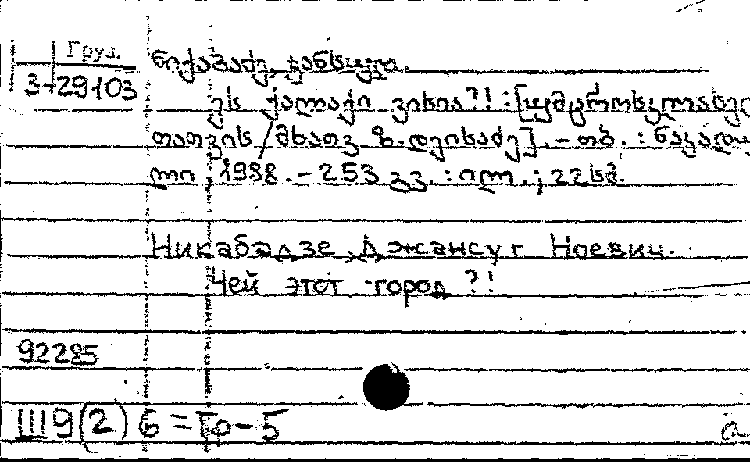 Груз.
3-29103
ნიკაბაძე, ჯანსუღი.
ეს ქალაქი ვისია?! : [უმცროსკლასელ
თათვის / მხატვ. ზ. დეისაძე]. – თბ. : ნაკადუ
ლი, 1988. – 253 გვ. : ილ. ; 22 სმ.
Никабадзе, Джансуг Ноевич.
Чей этот город?!
92285
Ш9(2)6=Гр-5
a